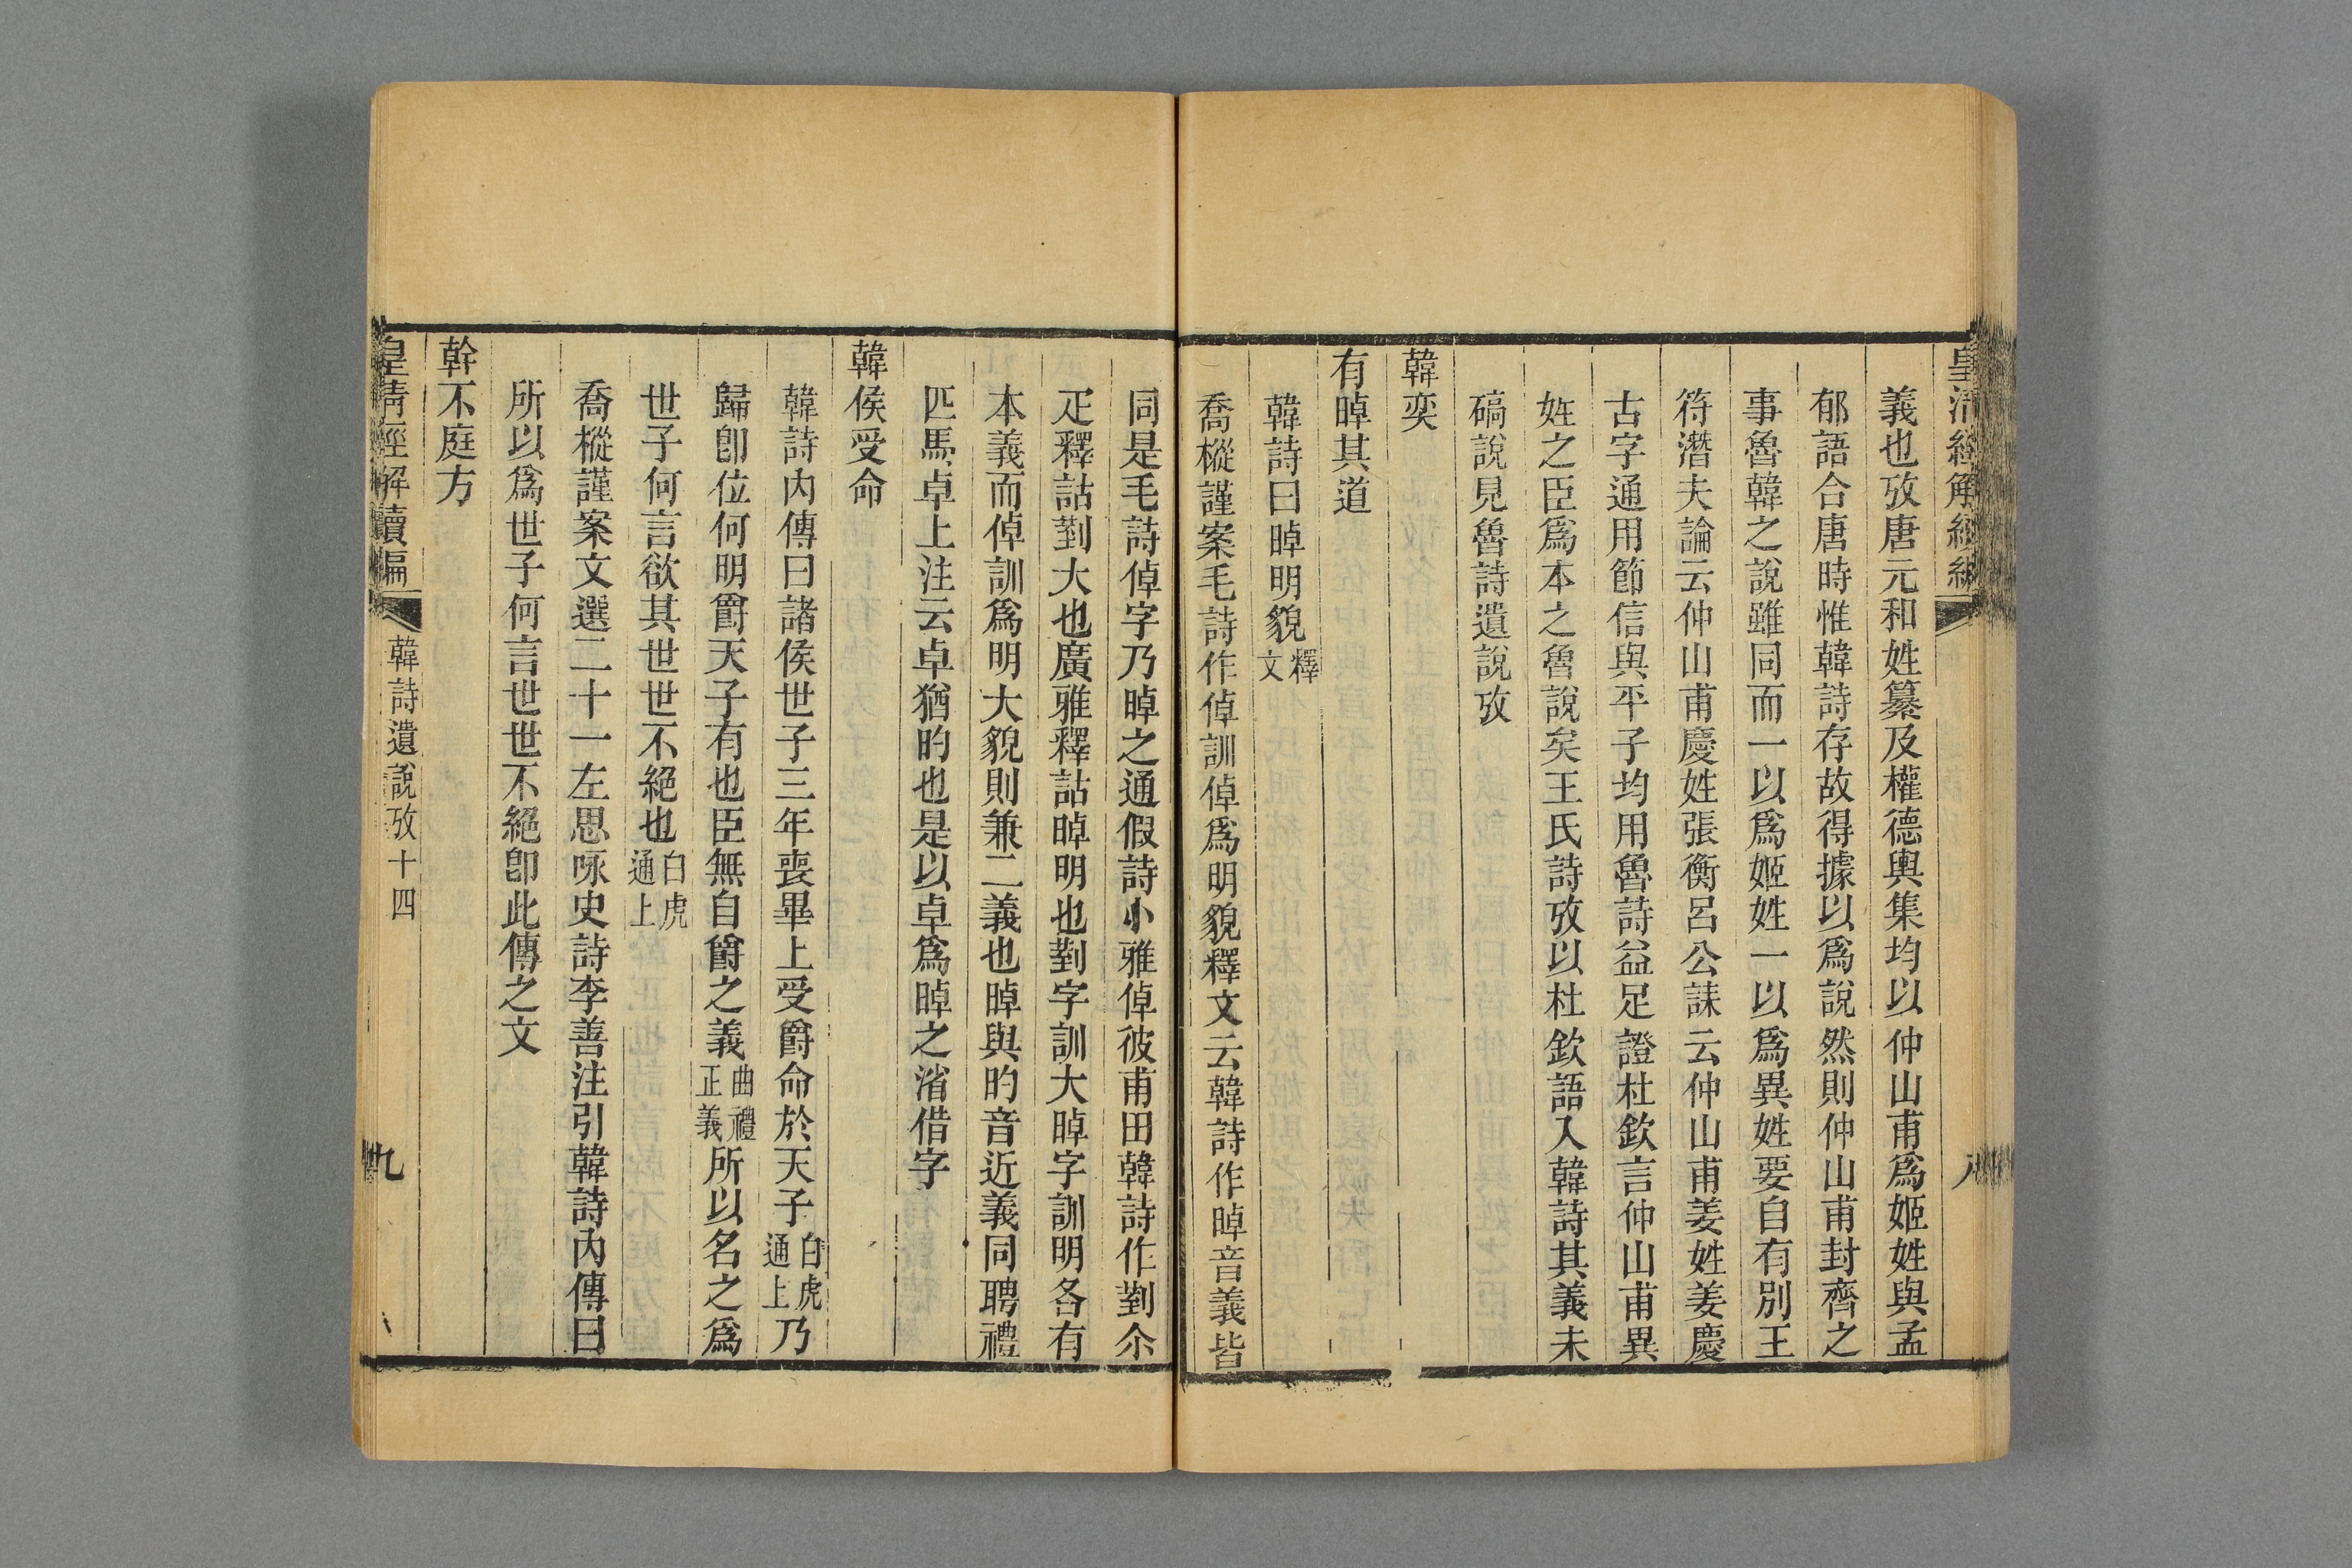 皇清經解續編
八
義也攷唐元和姓纂及權德輿集均以仲山甫爲姬姓與孟
郁語合唐時惟韓詩存故得據以爲說然則仲山甫封齊之
事魯韓之說雖同而一以爲姬姓一以爲異姓要自有別王
符潛夫論云仲山甫慶姓張衡呂公誄云仲山甫姜姓姜慶
古字通用節信與平子均用魯詩益足證杜欽言仲山甫異
姓之臣爲本之魯說矣王氏詩攷以杜欽語入韓詩其義未
碻說見魯詩遺說攷
韓奕
有晫其道
韓詩曰晫明貌釋文
喬樅謹案毛詩作倬訓倬爲明貌釋文云韓詩作晫音義皆
同是毛詩倬字乃晫之通假詩小雅倬彼甫田韓詩作菿尒
疋釋詁菿大也廣雅釋詁晫明也菿字訓大晫字訓明各有
本義而倬訓爲明大貌則兼二義也晫與旳音近義同聘禮
匹馬卓上注云卓猶旳也是以卓爲晫之渻借字
韓侯受命
韓詩內傳曰諸侯世子三年喪畢上受爵命於天子白虎通上乃
歸卽位何明爵天子有也臣無自爵之義曲禮正義所以名之爲
世子何言欲其世世不絕也白虎通上
喬樅謹案文選二十一左思咏史詩李善注引韓詩內傳曰
所以爲世子何言世世不絕卽此傳之文
幹不庭方
皇清經解續編
韓詩遺說攷十四
九